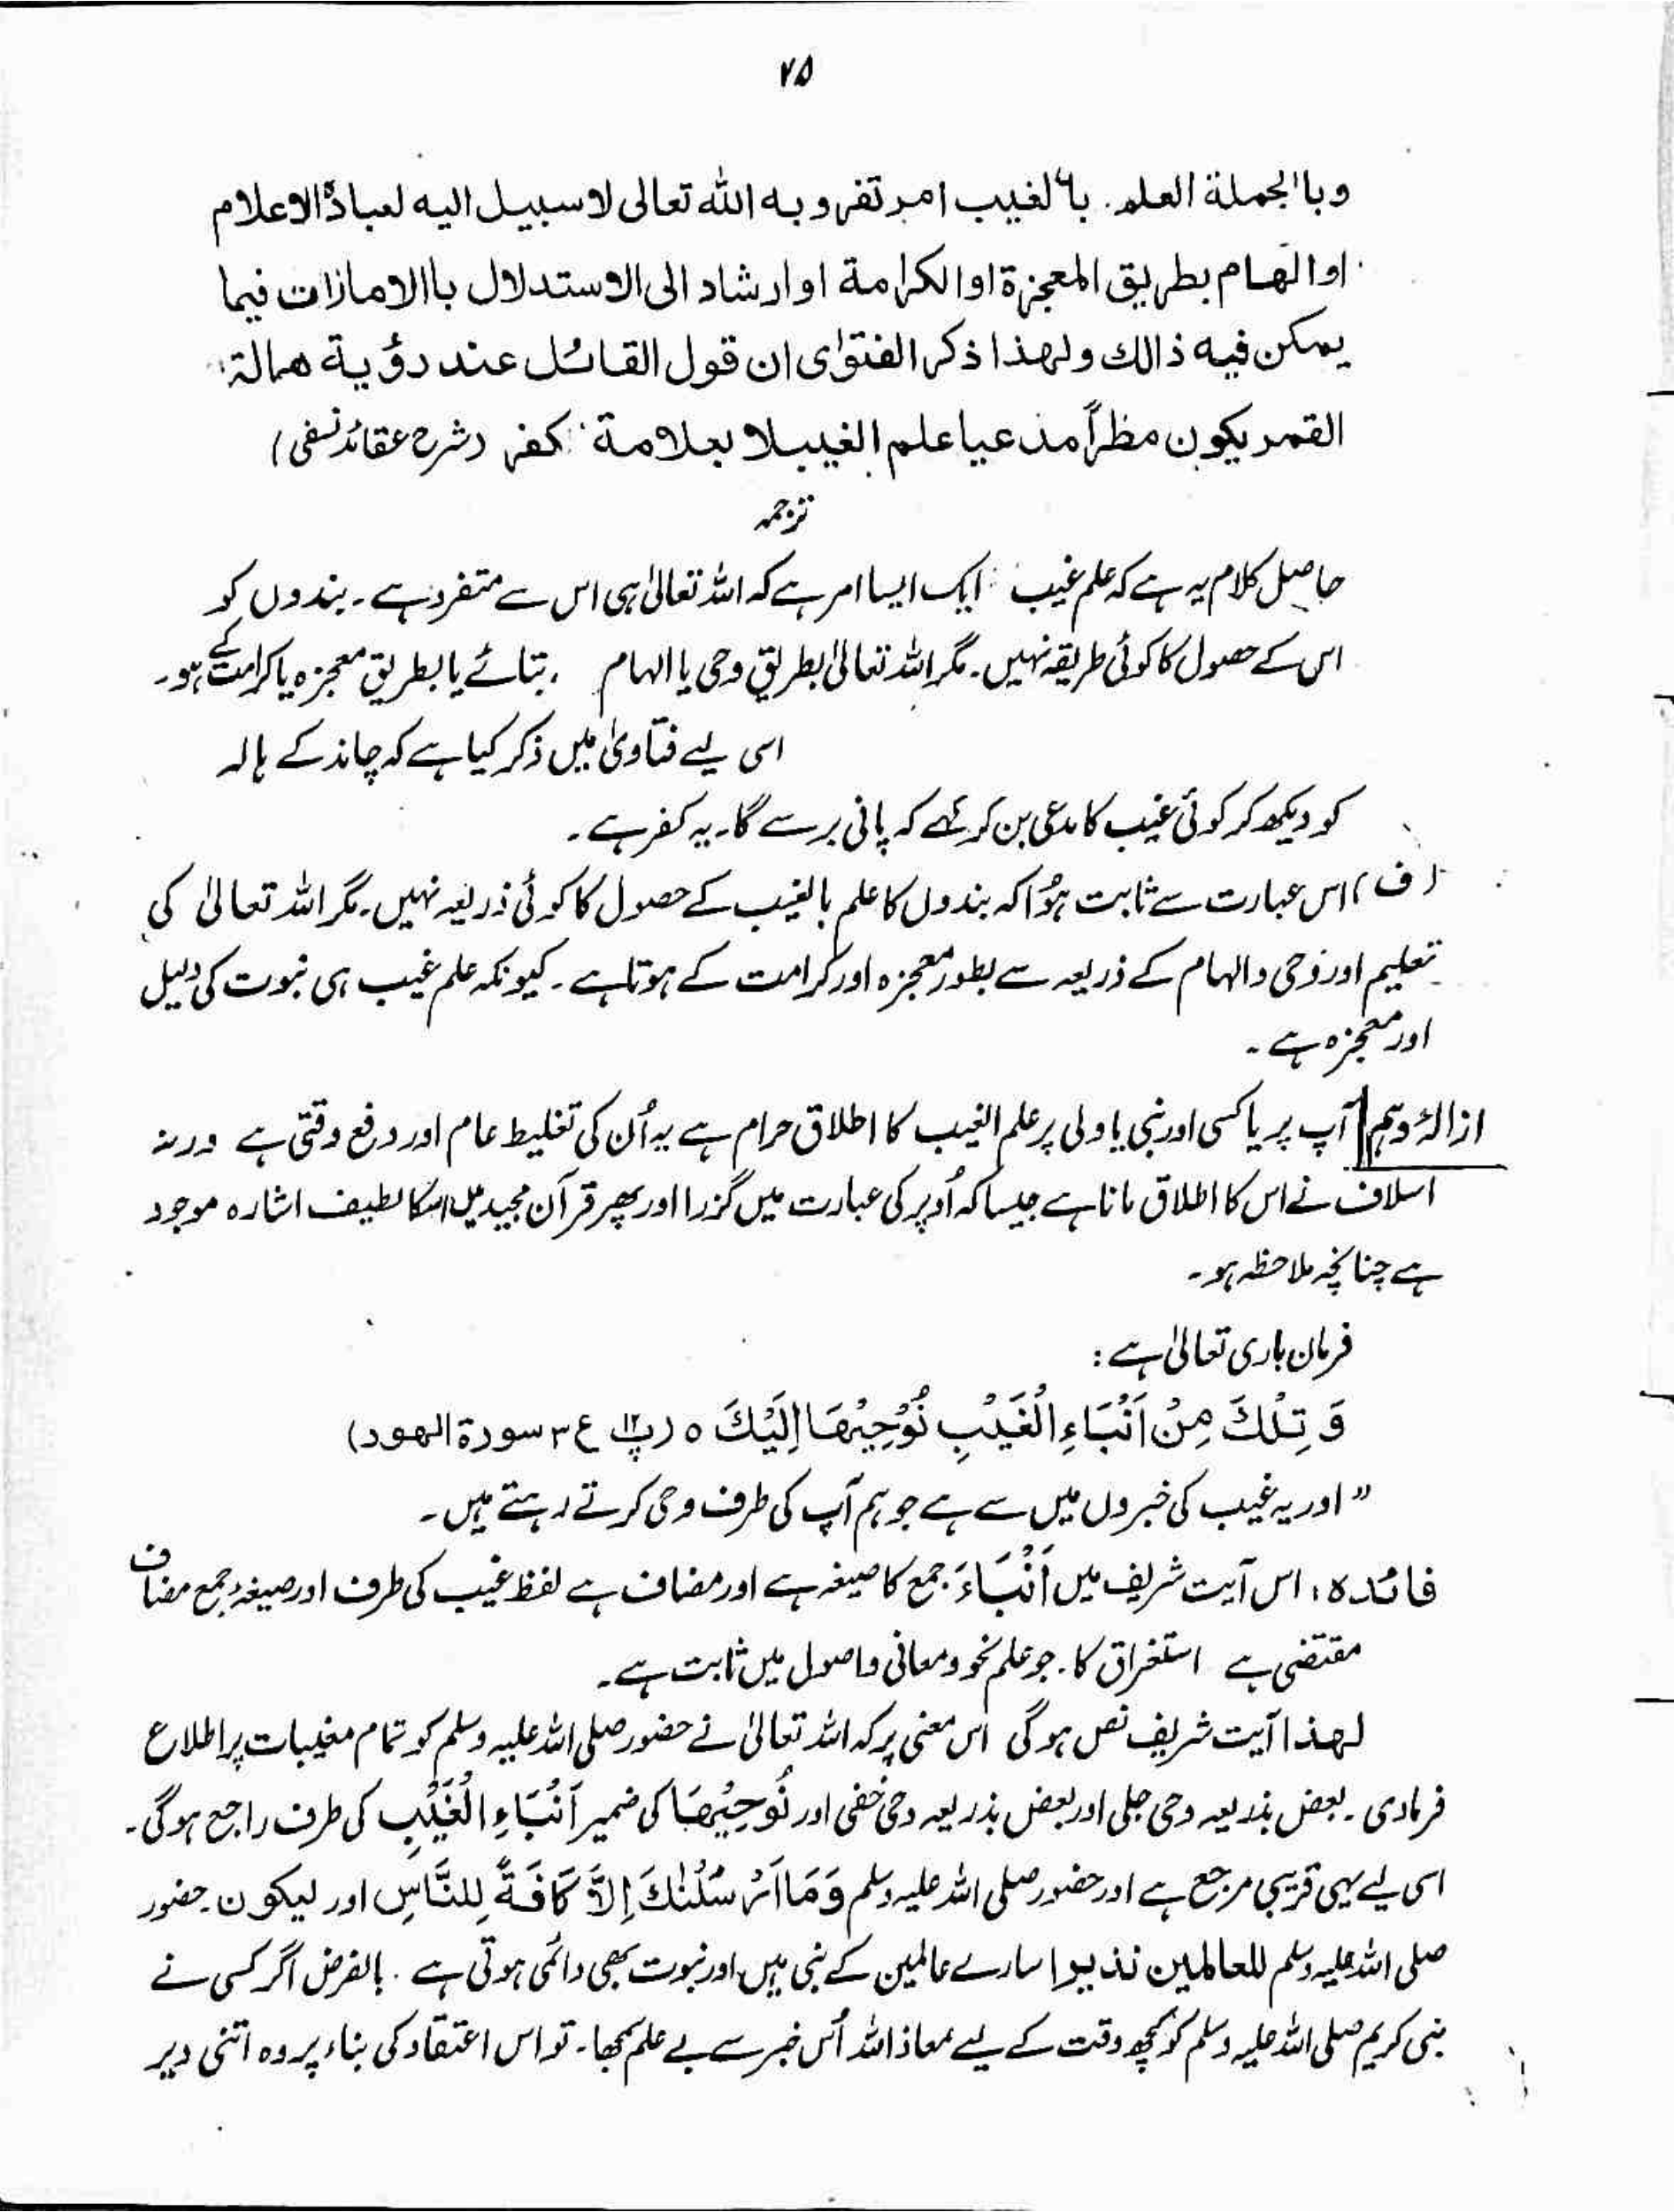 ۷۵
وباالجملة العلم. باالغيب امر تفروبه الله تعالى لاسبيل اليه لعبادة الاعلام
اوالهام بطريق المعجزة اوالكرامة اوارشاد الى الاستدلال باالامازات فيما
يمكن فيه ذالك ولهذا ذكر الفتوٰى ان قول القائل عند رؤية همالة
القمر يكون مظراً مدعيا علم الغيبلا بعلامة كفر (شرح عقائد نسفی)
ترجمہ
حاصل کلام یہ ہے کہ علم غیب ایک ایسا امر ہے کہ اللہ تعالیٰ ہی اس سے متفرد ہے۔ بندوں کو
اس کے حصول کا کوئی طریقہ نہیں۔ مگر اللہ تعالیٰ بطریق وحی یا الہام ، بتائے یا بطریق معجزہ یا کرامت کے ہو۔
اسی لیے فتاویٰ میں ذکر کیا ہے کہ چاند کے ہالہ
کو دیکھ کر کوئی غیب کا مدعی بن کر کہے کہ پانی برسے گا۔ یہ کفر ہے۔
(ف) اس عبارت سے ثابت ہُوا کہ بندوں کا علم بالغیب کے حصول کا کوئی ذریعہ نہیں۔ مگر اللہ تعالیٰ کی
تعلیم اور وحی والہام کے ذریعہ سے بطور معجزہ اور کرامت کے ہوتا ہے۔ کیونکہ علم غیب ہی نبوت کی دلیل
اور معجزہ ہے۔
ازالۂ وہم آپ پر یا کسی اور نبی یا ولی پر علم الغیب کا اطلاق حرام ہے یہ اُن کی تغلیط عام اور دفع وقتی ہے ورنہ
اسلاف نے اس کا اطلاق مانا ہے جیسا کہ اُوپر کی عبارت میں گزرا اور پھر قرآن مجید میں اسکا لطیف اشارہ موجود
ہے چنانچہ ملاحظہ ہو۔
فرمان باری تعالیٰ ہے :
وَ تِلْكَ مِنْ اَنْبَاءِ الْغَيْبِ نُوْحِيْهَا اِلَيْكَ ٥ (پ۱۲ ع ۳ سورة الهود)
" اور یہ غیب کی خبروں میں سے ہے جو ہم آپ کی طرف وحی کرتے رہتے ہیں۔
فائدہ : اس آیت شریف میں اَنْۢبَاءَ جمع کا صیغہ ہے اور مضاف ہے لفظ غیب کی طرف اور صیغۂ جمع مضاف
مقتضی ہے استغراق کا۔ جو علم نحو و معانی و اصول میں ثابت ہے۔
لہذا آیت شریف نص ہوگی اس معنی پر کہ اللہ تعالیٰ نے حضور صلی اللہ علیہ وسلم کو تمام مغیبات پر اطلاع
فرمادی۔ بعض بذریعہ وحی جلی اور بعض بذریعہ وحی خفی اور نُوْحِيْهَا کی ضمیر اَنْۢبَاءِ الْغَيْبِ کی طرف راجع ہوگی۔
اسی لیے یہی قریبی مرجع ہے اور حضور صلی اللہ علیہ وسلم وَمَا اَرْسَلْنٰكَ اِلَّا كَافَةً لِلنَّاسِ اور لیکون حضور
صلی اللہ علیہ وسلم للعالمین نذیرا سارے عالمین کے نبی ہیں اور نبوت بھی دائمی ہوتی ہے۔ بالفرض اگر کسی نے
نبی کریم صلی اللہ علیہ وسلم کو کچھ وقت کے لیے معاذ اللہ اُس خبر سے بے علم سمجھا۔ تو اس اعتقاد کی بناء پر وہ اتنی دیر